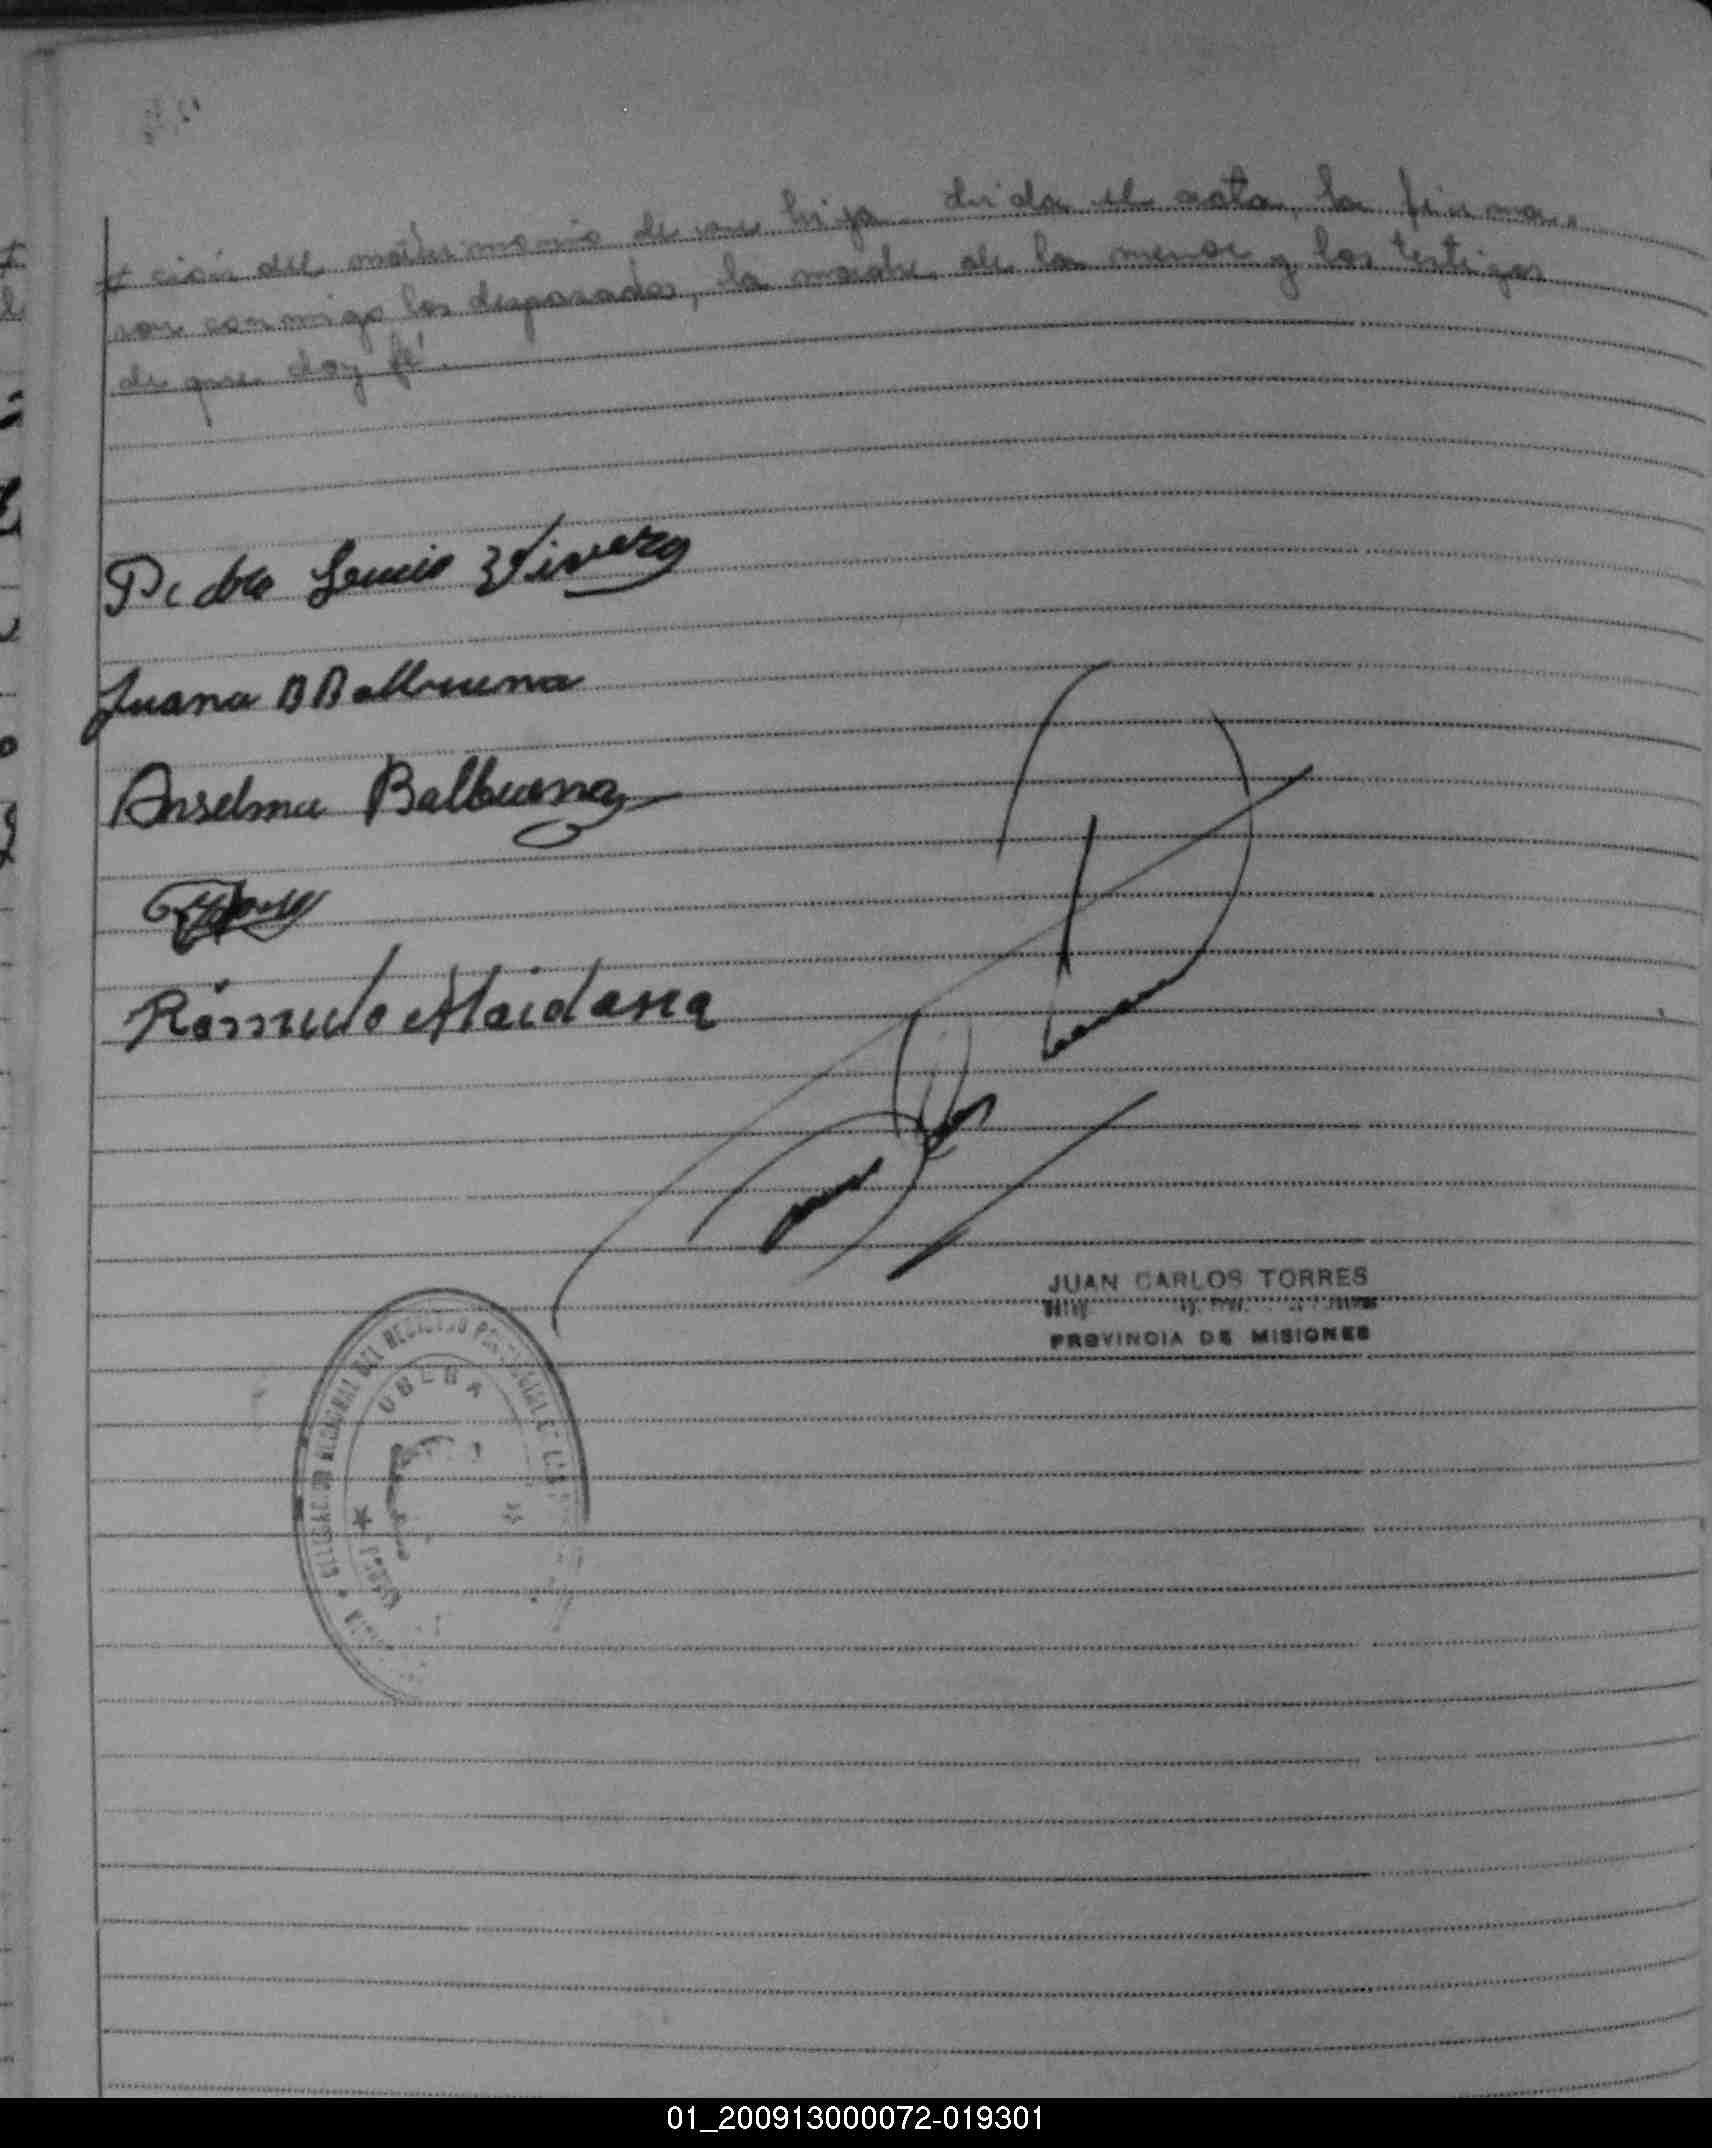 ción del matrimonio de su hija. Leida el acta, la firma
ron conmigo los desposados, la madre de la menor y los testigos
de que doy fé.
Pedro Lucio Vivero
Juana B Balbuena
Anselma Balbuena
Rómulo Maidana
JUAN CARLOS TORRES
PROVINCIA DE MISIONES
DELEGACION REGIONAL DEL REGISTRO PROVINCIAL DE LAS
OBERA
01_200913000072-019301